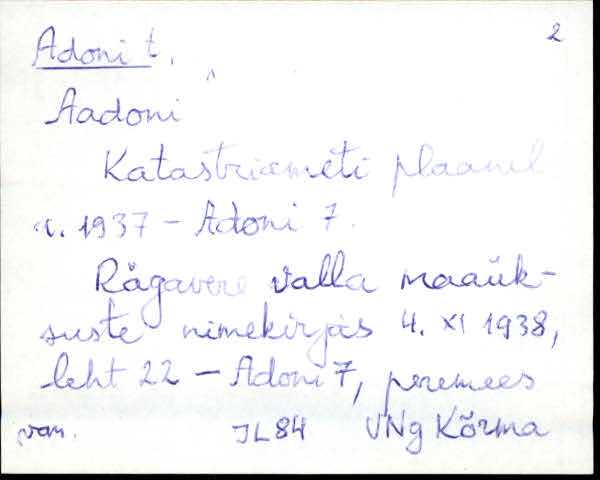 2
Adoni t.
Aadoni
Katastriameti plaanil
a. 1937 - Adoni 7.
Rägavere valla maaük-
suste nimekirjas 4. XI 1938,
leht 22 - Adoni 7, peremees
JL84 VNg Kõrma